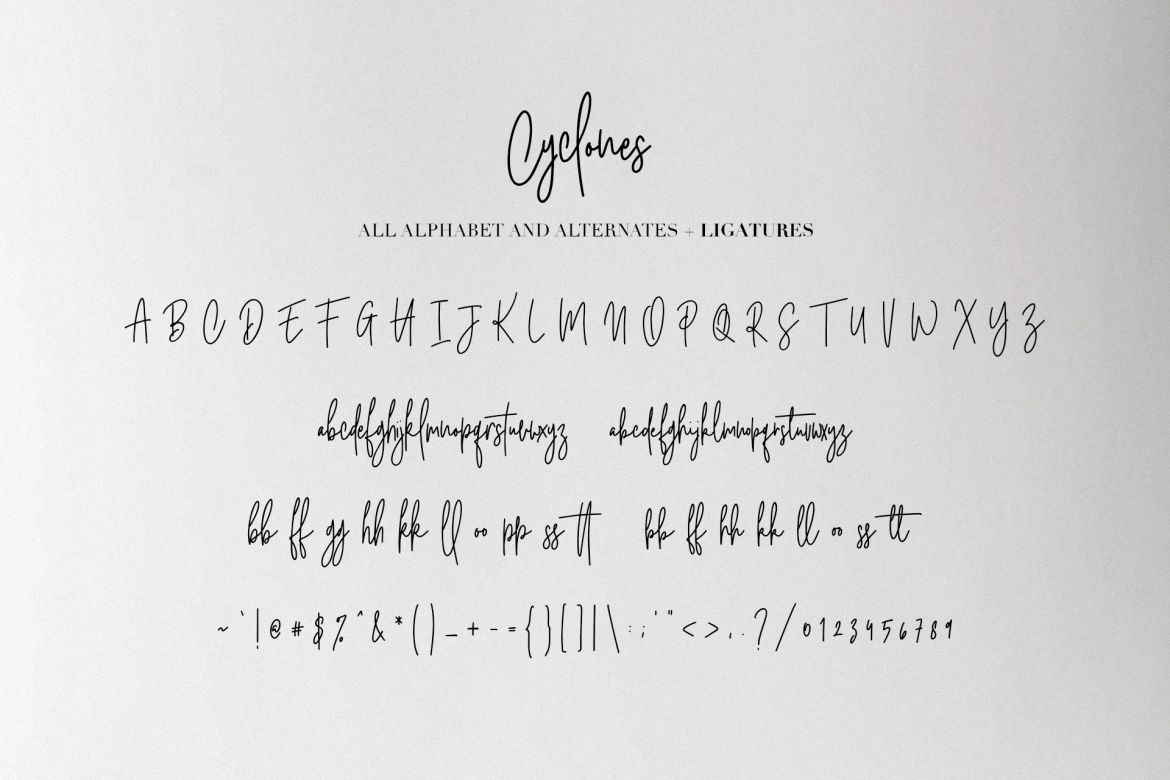 Cyclones
ALL ALPHABET AND ALTERNATES + LIGATURES
A B C D E F G H I J K L M N O P Q R S T U V W X Y Z
abcdefghijklmnopqrstuvwxyz abcdefghijklmnopqrstuvwxyz
bb ff gg hh kk ll oo pp ss tt bb ff hh kk ll oo ss tt
~ ` ! @ # $ % ^ & * ( ) _ + - = { } [ ] | \ : ; ' " < > , . ? / 0 1 2 3 4 5 6 7 8 9